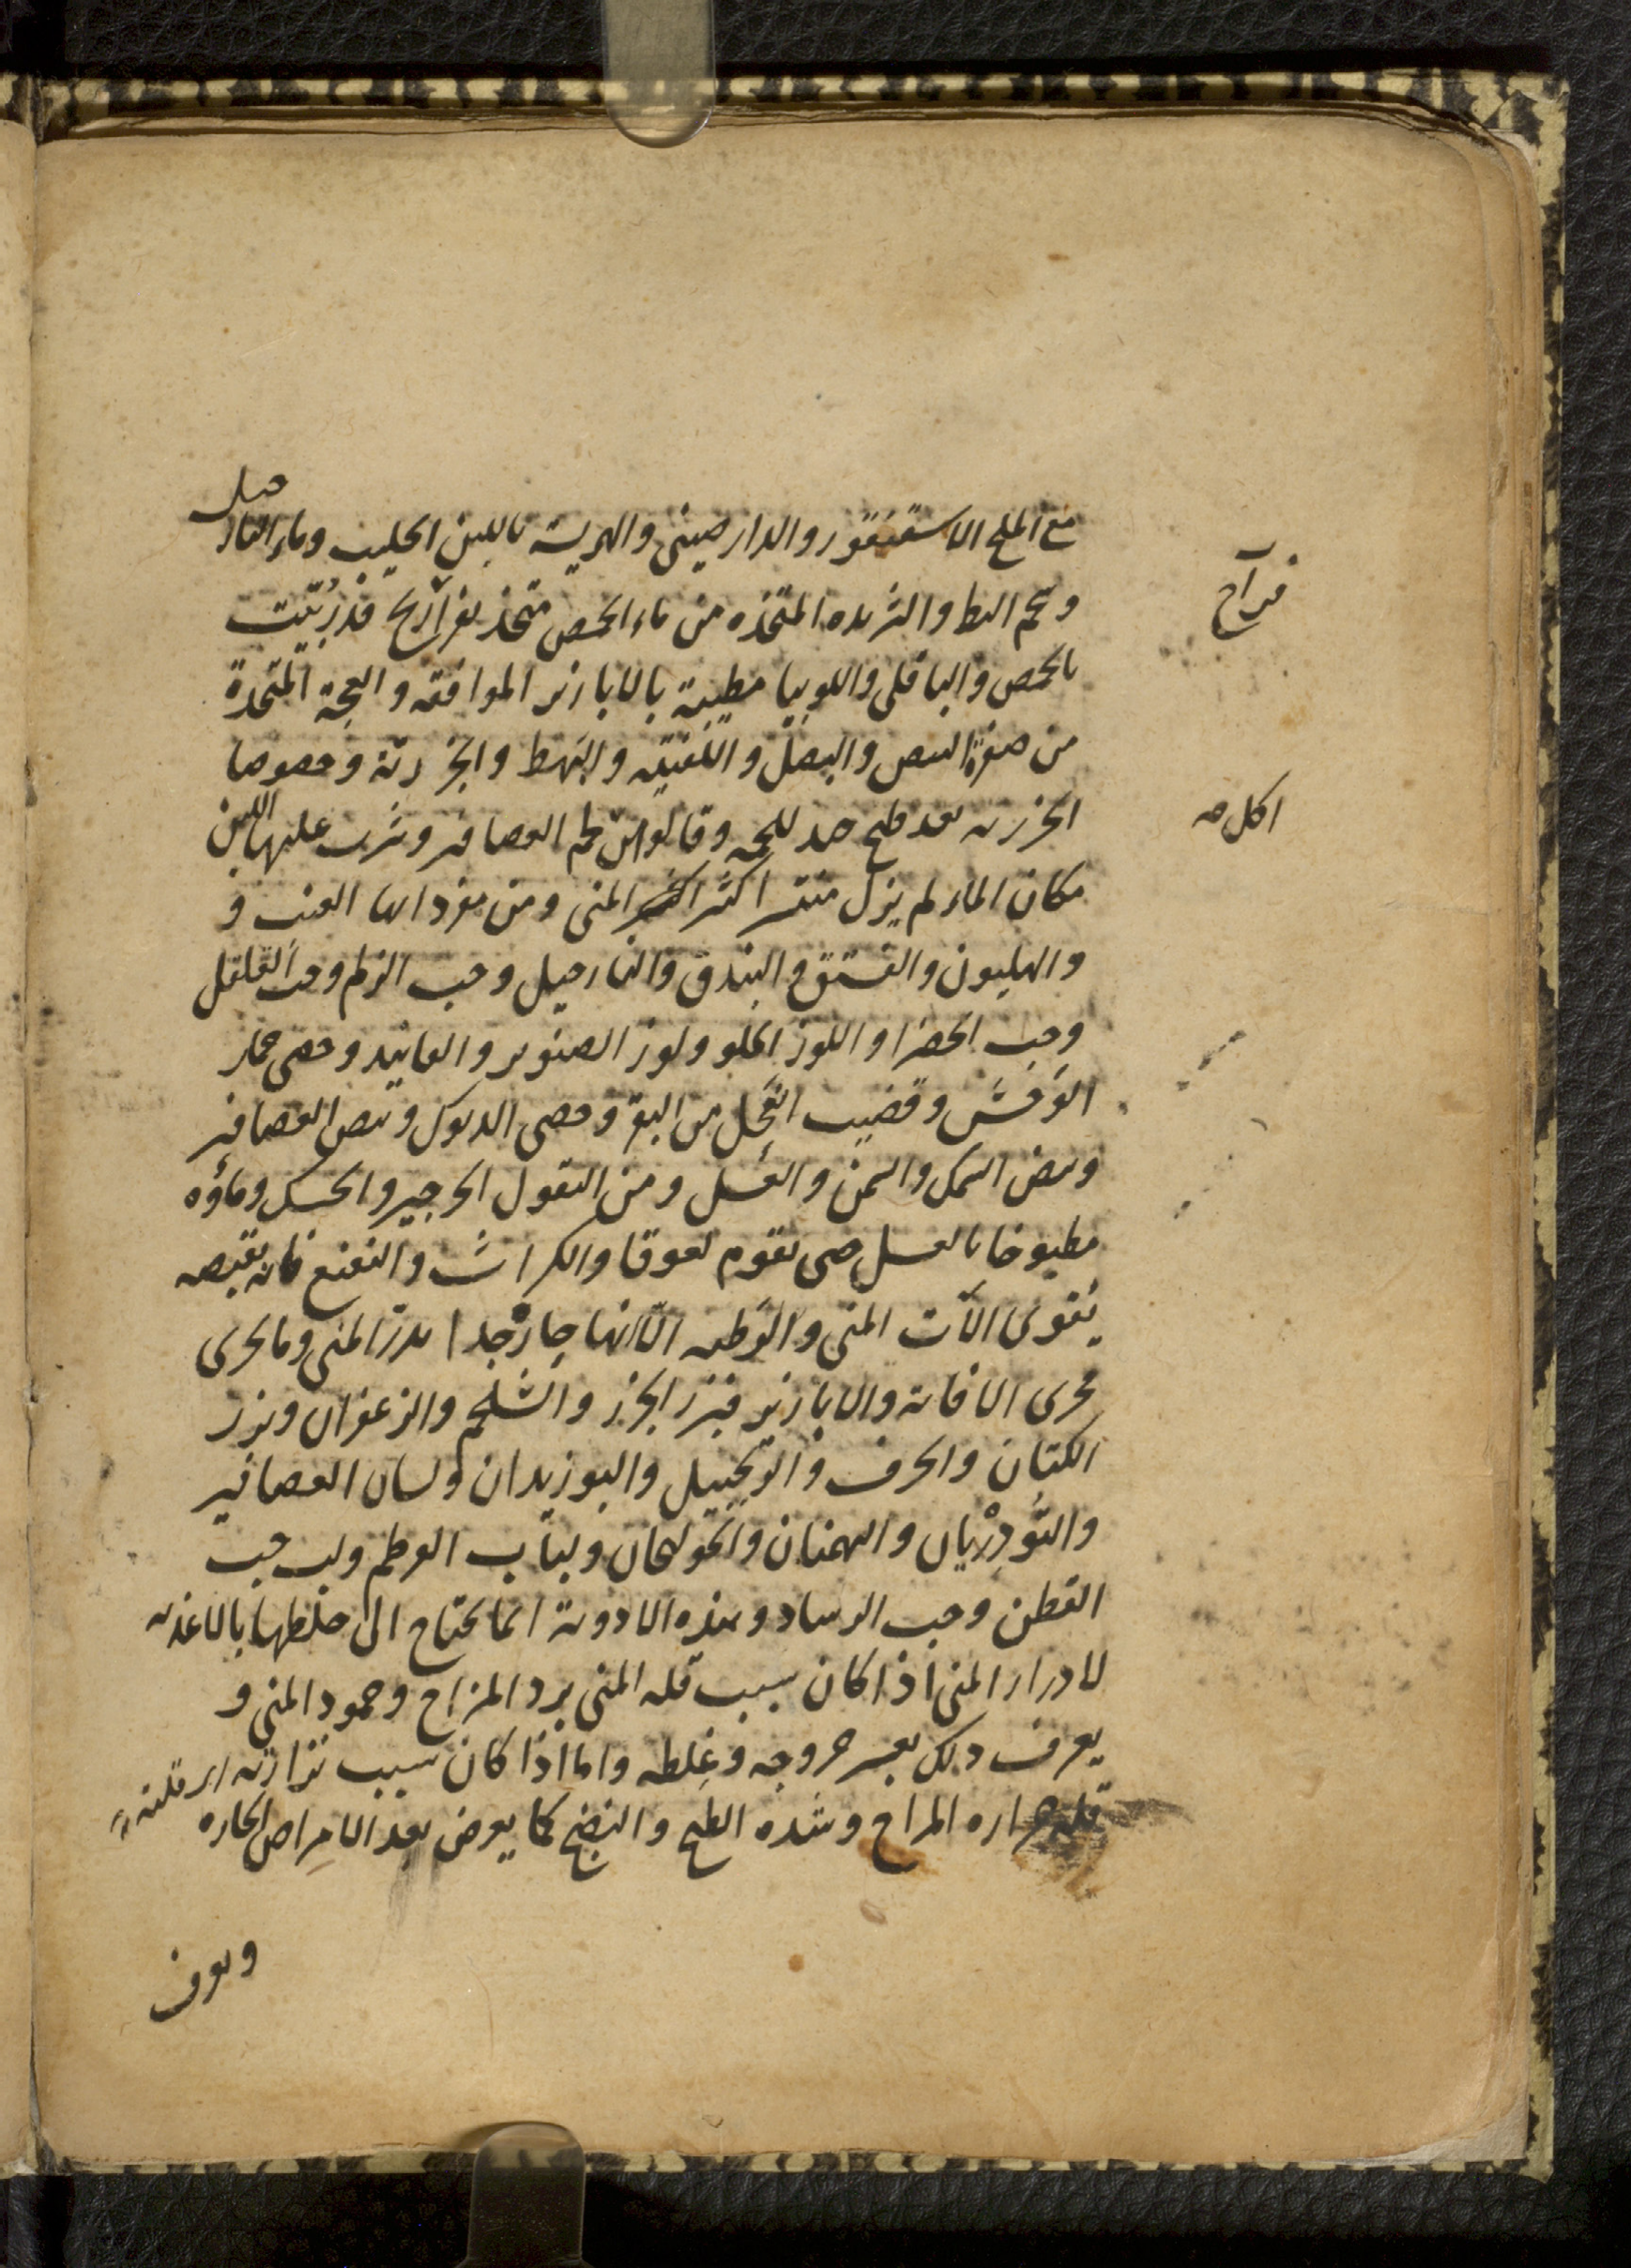 مع الملح الاسقنقور والدارصينى والهريسة باللبن الحليب وماء النار
جيل
ولحم البط والثريده المتخذه من ماء الحمص متخذ بفراريج قد رُبّيت
فراخ
بالحمص والباقلى واللوبيا مطيبة بالابازير الموافقه والعجة المتخذة
من صفرة البيض والبصل واللفتيه والبهط والجزرية وخصوصا
الجزريه بعد طبخ جيد للحمه وقالوا من لحم العصافير وشرب عليها اللبن
اكل صـ
مكان الماء لم يزل منتشر اكثر اكثير المنى ومن مفرداتها العنب و
والهليون والفستق والبندق والنارجيل وحب الزلم وحب القلقل
وحب الخضرا واللوز الحلو ولوز الصنوبر والفانيد وخصى حمار
الوَحش وقضيب الفحل من البقر وخصى الديوك وبيض العصافير
وبيض السمك والسمن والعسل ومن البقول الجرجير والحسك وماؤه
مطبوخا بالعسل حتى يقوم لعوقا والكراث والنعنع فانه بقبضه
يقوى الآت المنى والرطبه الا انها حارة جدا يدر المنى وما يجرى
مجرى الافاويه والابازير فبزر الجزر والشلجم والزعفران وبزر
الكتان والحرف والزنجبيل والبوزيدان ولسان العصافير
والتُّودِرْيان والبهمنان والخولنجان ولباب القرطم ولب حب
القطن وحب الرشاد وهذه الادوية انما يحتاج الى خلطها بالاغذيه
لادرار المنى اذا كان سبب قله المنى برد المزاج وجمود المنى و
يعرف ذلك بعسر خروجه وغِلظه واما اذا كان سبب نزارته اى قلته
قله حراره المزاج وشده الطبخ والنضج كما يعرض بعد الامراض الحاره
ويعرف